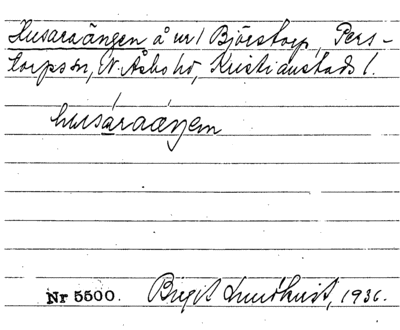 Husaraängen å nr 1 Björstorp, Pers-
torps sn, N. Åsbo hd, Kristianstads l.
husáraáŋen
Nr 5500. Birgit Lundkvist, 1936.